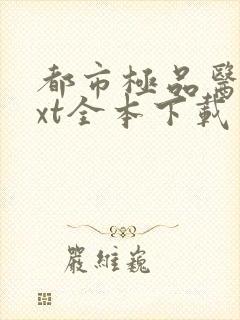 都市極品醫
xt全本下載
嚴維巍